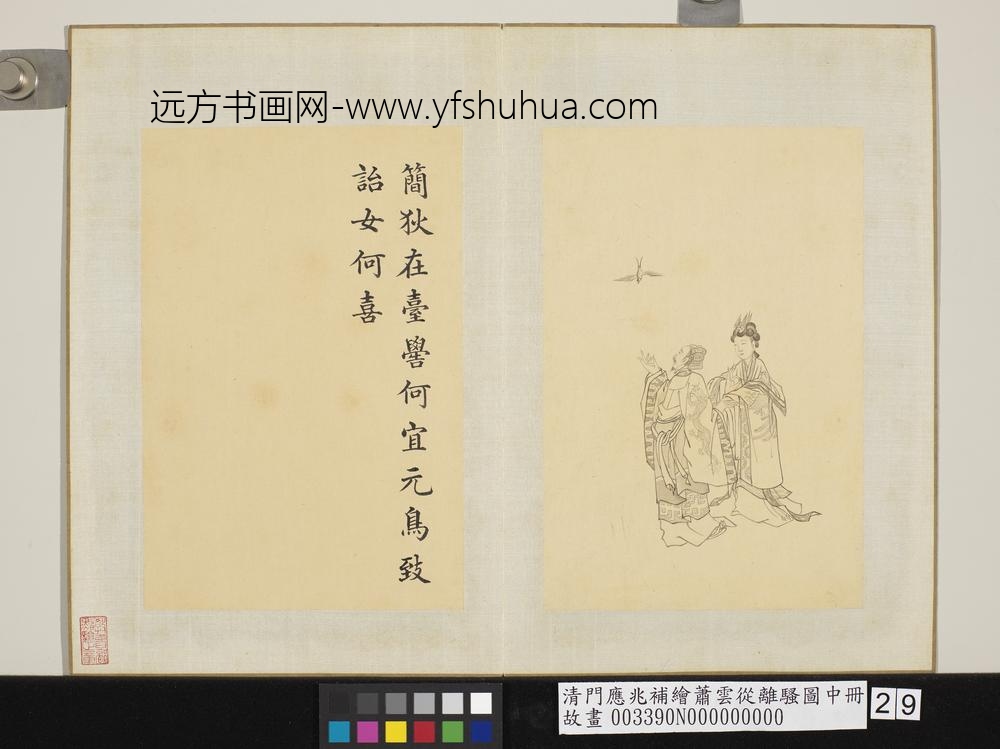 远方书画网-www.yfshuhua.com
簡狄在臺嚳何宜元鳥致
詒女何喜
清門應兆補繪蕭雲從離騷圖中冊
故畫 003390N000000000
29